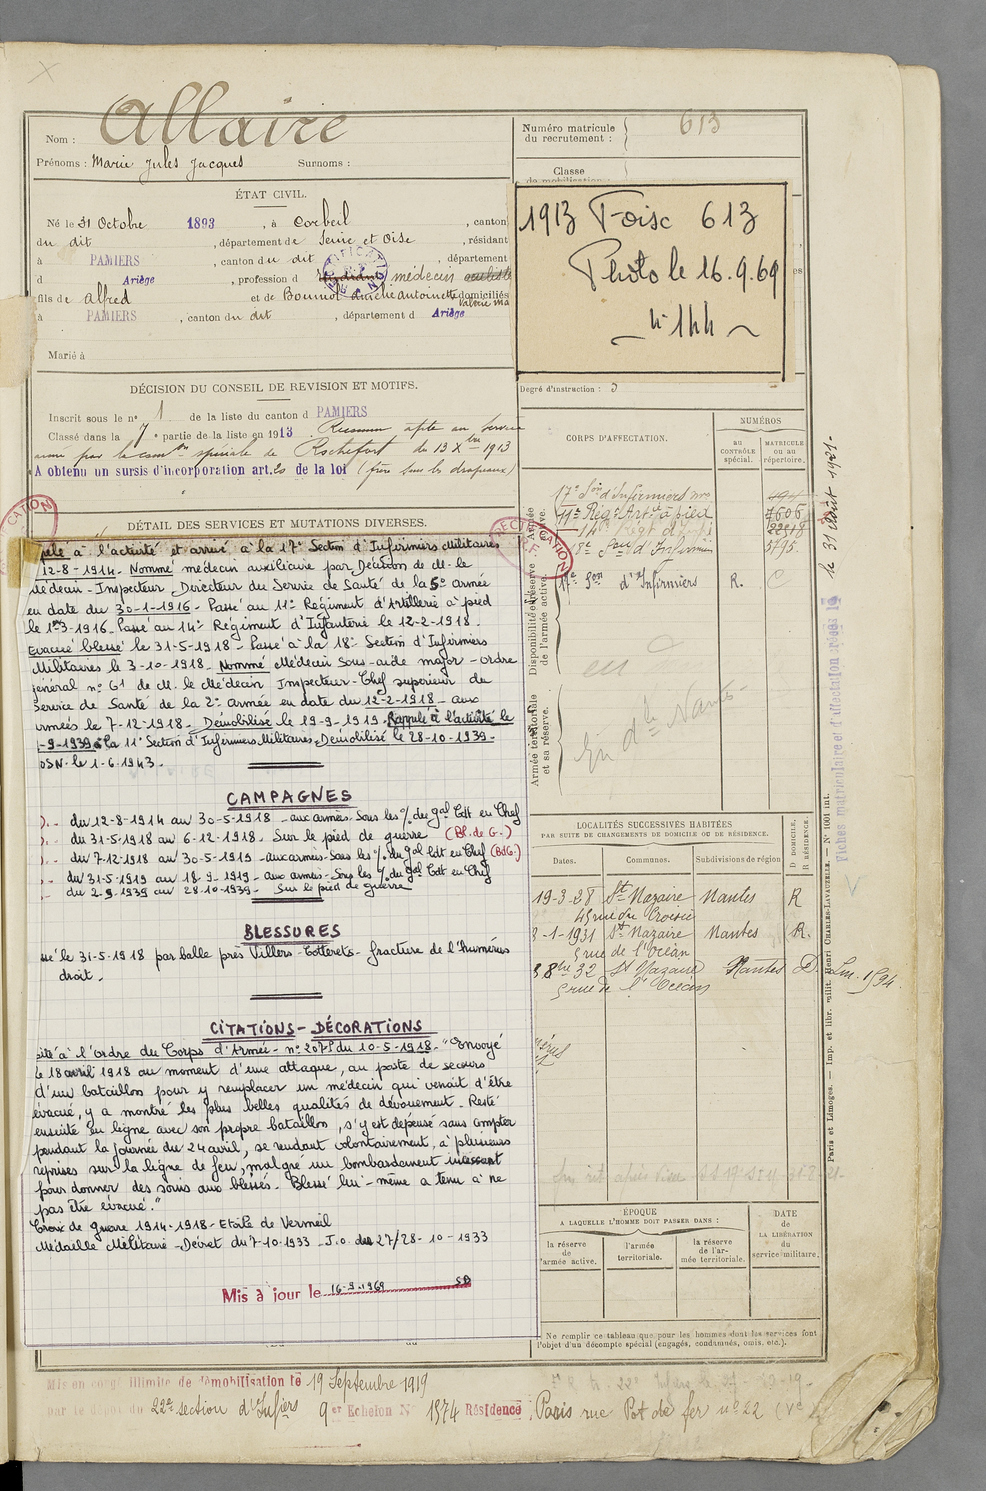 Allaire
Nom :
Prénoms : Marie Jules Jacques Surnoms :
Numéro matricule
du recrutement :
613
Classe
de mobilisation :
1913 Foisc 613
Photo le 16.9.69
n° 144
ÉTAT CIVIL.
Né le 31 Octobre 1893, à Corbeil, canton
du dit, département de Seine et Oise, résidant
à PAMIERS, canton du dit, département
d Ariège, profession d médecin
fils de Alfred et de domiciliés
à PAMIERS, canton du dit, département d Ariège
Marié à
DÉCISION DU CONSEIL DE REVISION ET MOTIFS.
Inscrit sous le n° 1 de la liste du canton d PAMIERS
Classé dans la 7e partie de la liste en 1913. Reconnu apte au service
armé par la com on spéciale de Rochefort du 13 Xbre 1913
A obtenu un sursis d'incorporation art. 20 de la loi (frère sous les drapeaux)
DÉTAIL DES SERVICES ET MUTATIONS DIVERSES.
pelé à l'activité et arrivé à la 17e Section d'Infirmiers Militaires
12-8-1914. Nommé médecin auxiliaire par Décision de M. le
Médecin-Inspecteur Directeur du Service de Santé de la 5e armée
en date du 30-1-1916. Passé au 11e Régiment d'Artillerie à pied
le 1er-3-1916. Passé au 14e Régiment d'Infanterie le 12-2-1918.
Evacué blessé le 31-5-1918. Passé à la 18e Section d'Infirmiers
Militaires le 3-10-1918. Nommé Médecin Sous-aide major - ordre
général n° 61 de M. le Médecin Inspecteur-Chef supérieur du
Service de Santé de la 2e armée en date du 12-2-1918 - aux
armées le 7-12-1918. Démobilisé le 19-9-1919. Rappelé à l'activité le
-9-1939 à la 11e Section d'Infirmiers Militaires. Démobilisé le 28-10-1939.
DSN. le 1-6-1943.
CAMPAGNES
du 12-8-1914 au 30-5-1918 - aux armées. Sous les % du gal Cdt en Chef
du 31-5-1918 au 6-12-1918. Sur le pied de guerre (Bl. de G.)
du 7-12-1918 au 30-5-1919 - aux armées - Sous les % du gal Cdt en Chef (BdG.)
du 31-5-1919 au 18-9-1919 - aux armées - Sous les % du gal Cdt en Chef
du 2-9-1939 au 28-10-1939 - Sur le pied de guerre
BLESSURES
sé le 31-5-1918 par balle près Villers-Cotterets - fracture de l'humérus
droit.
CITATIONS - DÉCORATIONS
cité à l'ordre du Corps d'Armée - n° 207 du 10-5-1918. "Envoyé
le 18 avril 1918 au moment d'une attaque, au poste de secours
d'un bataillon pour y remplacer un médecin qui venait d'être
évacué, y a montré les plus belles qualités de dévouement. Resté
ensuite en ligne avec son propre bataillon, s'y est dépensé sans compter
pendant la journée du 24 avril, se rendant volontairement, à plusieurs
reprises sur la ligne de feu, malgré un bombardement incessant
pour donner des soins aux blessés. Blessé lui-même a tenu à ne
pas être évacué."
Croix de guerre 1914-1918 - Etoile de Vermeil
Médaille Militaire - Décret du 7-10-1933 - J.O. du 27/28-10-1933
Mis à jour le 16-9-1969
Degré d'instruction : 3
CORPS D'AFFECTATION.
NUMÉROS
AU
CONTRÔLE
spécial.
MATRICULE
ou au
répertoire.
Armée
active.
17e Son d'Infirmiers
11e Régt Art à pied 7606
14e Régt d'Infie 22218
18e d'Infirmiers 5795
Disponibilité et réserve
de l'armée active.
17e Son d'Infirmiers R.
Armée territoriale
et sa réserve.
LOCALITÉS SUCCESSIVES HABITÉES
PAR SUITE DE CHANGEMENTS DE DOMICILE OU DE RÉSIDENCE.
Dates. Communes. Subdivisions de région
D. DOMICILE.
R. RÉSIDENCE.
19-3-28 St Nazaire Nantes R
45 rue du Croisic
3-1-1931 St Nazaire Nantes R.
5 rue de l'Océan
8 8bre 32 St Nazaire Nantes D.
5 rue de l'Océan
ÉPOQUE
A LAQUELLE L'HOMME DOIT PASSER DANS :
la réserve
de
l'armée active.
l'armée
territoriale.
la réserve
de l'ar-
mée territoriale.
DATE
de
LA LIBÉRATION
du
service militaire.
Ne remplir ce tableau que pour les hommes dont les services font
l'objet d'un décompte spécial (engagés, condamnés, omis, etc.).
le 31 Août 1921.
Fiches matriculaire et d'affectation créées le
Paris et Limoges. — Imp. et libr. milit. Henri CHARLES-LAVAUZELLE. — N° 1001 int.
Mis en congé illimité de démobilisation le 19 Septembre 1919
par le dépôt du 22e section d'Infiers 9er Echelon N° 1574 Résidence : Paris rue Pot de fer n° 22 (Ve